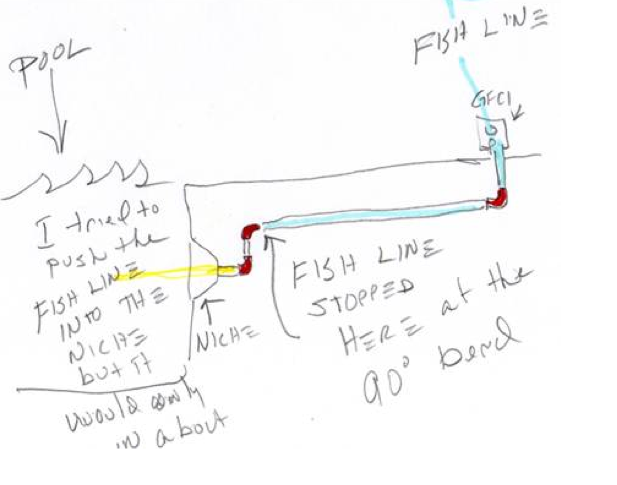 POOL
FISH LINE
GFCI
I tried to
push the
FISH LINE
INTO THE
NICHE
but it
would only
in about
NICHE
FISH LINE
STOPPED
HERE at the
90° bend